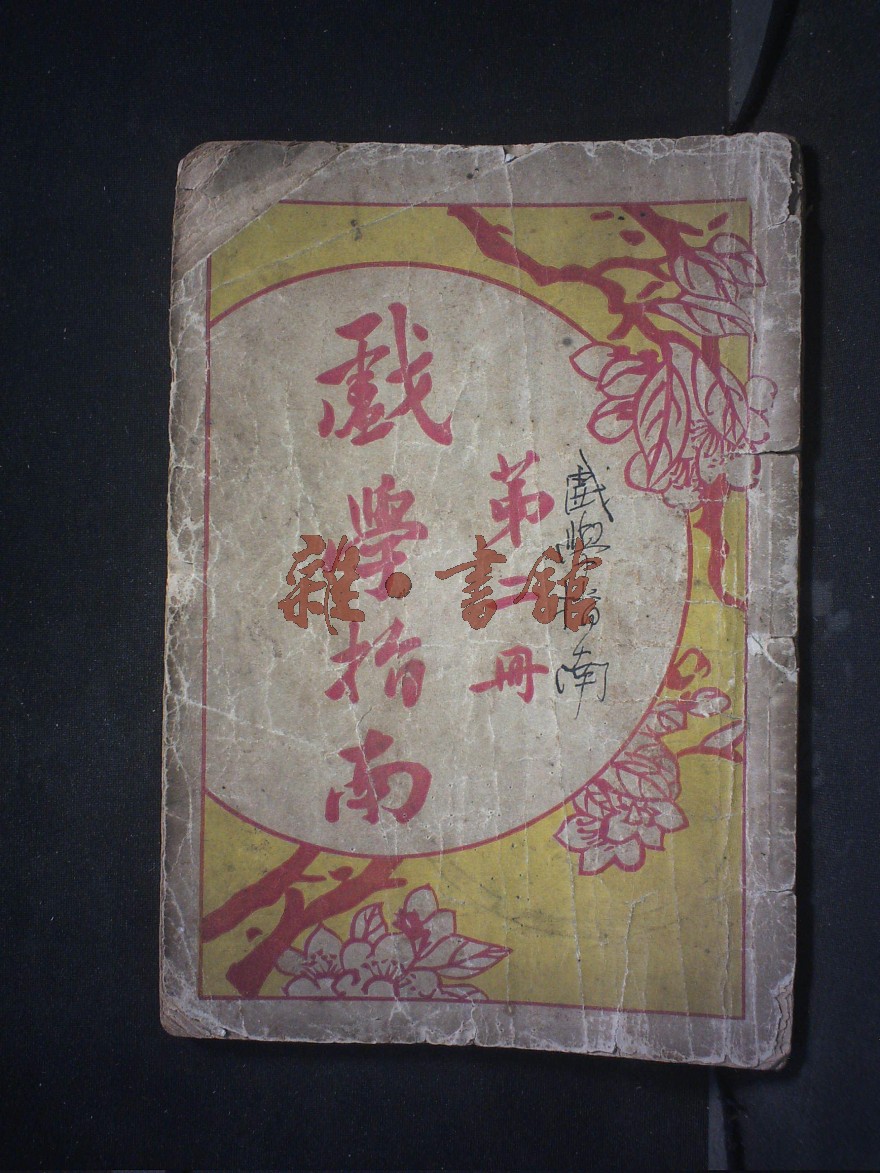 第二冊
戲學指南
戲學指南
雜·書館